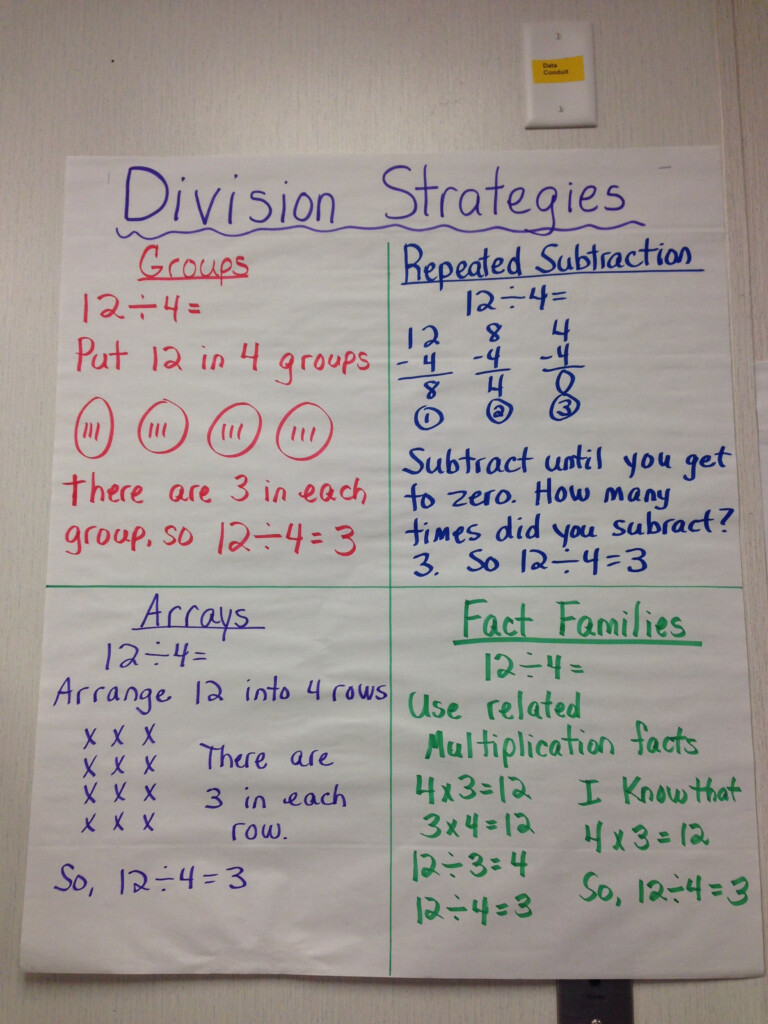 Data
Conduit
Division Strategies
Groups
12÷4=
Put 12 in 4 groups
There are 3 in each
group, so 12÷4=3
Repeated Subtraction
12÷4=
12 8 4
-4 -4 -4
8 4 0
① ② ③
Subtract until you get
to zero. How many
times did you subract?
3. So 12÷4=3
Arrays
12÷4=
Arrange 12 into 4 rows
x x x
x x x
x x x
x x x
There are
3 in each
row.
So, 12÷4=3
Fact Families
12÷4=
Use related
Multiplication facts
4x3=12
3x4=12
12÷3=4
12÷4=3
I Know that
4x3=12
So, 12÷4=3